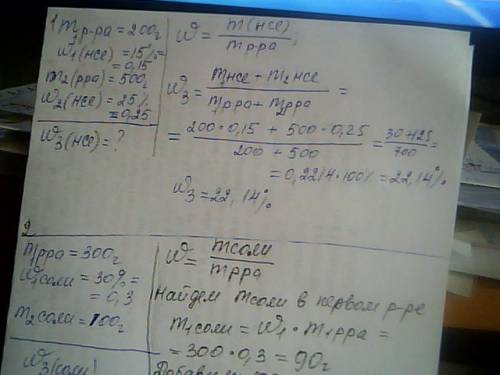 1 m₁ р-ра = 200г
w₁(HCl) = 15% =
= 0,15
m₂(рра) = 500г
w₂(HCl) = 25%
= 0,25
w₃(HCl) = ?
w = m(HCl) / m рра ;
w₃ = m₁HCl + m₂ HCl / m₁рра + m₂рра =
= 200 · 0,15 + 500 · 0,25 / 200 + 500 = 30 + 125 / 700 =
= 0,2214 · 100% = 22,14%
w₃ = 22,14%
2
m₁рра = 300г
w₁соли = 30% =
= 0,3
m₂соли = 100г
w₃(соли)
w = mсоли / mрра
Найдем mсоли в первом р-ре
m₁соли = w₁ · m₁рра =
= 300 · 0,3 = 90г